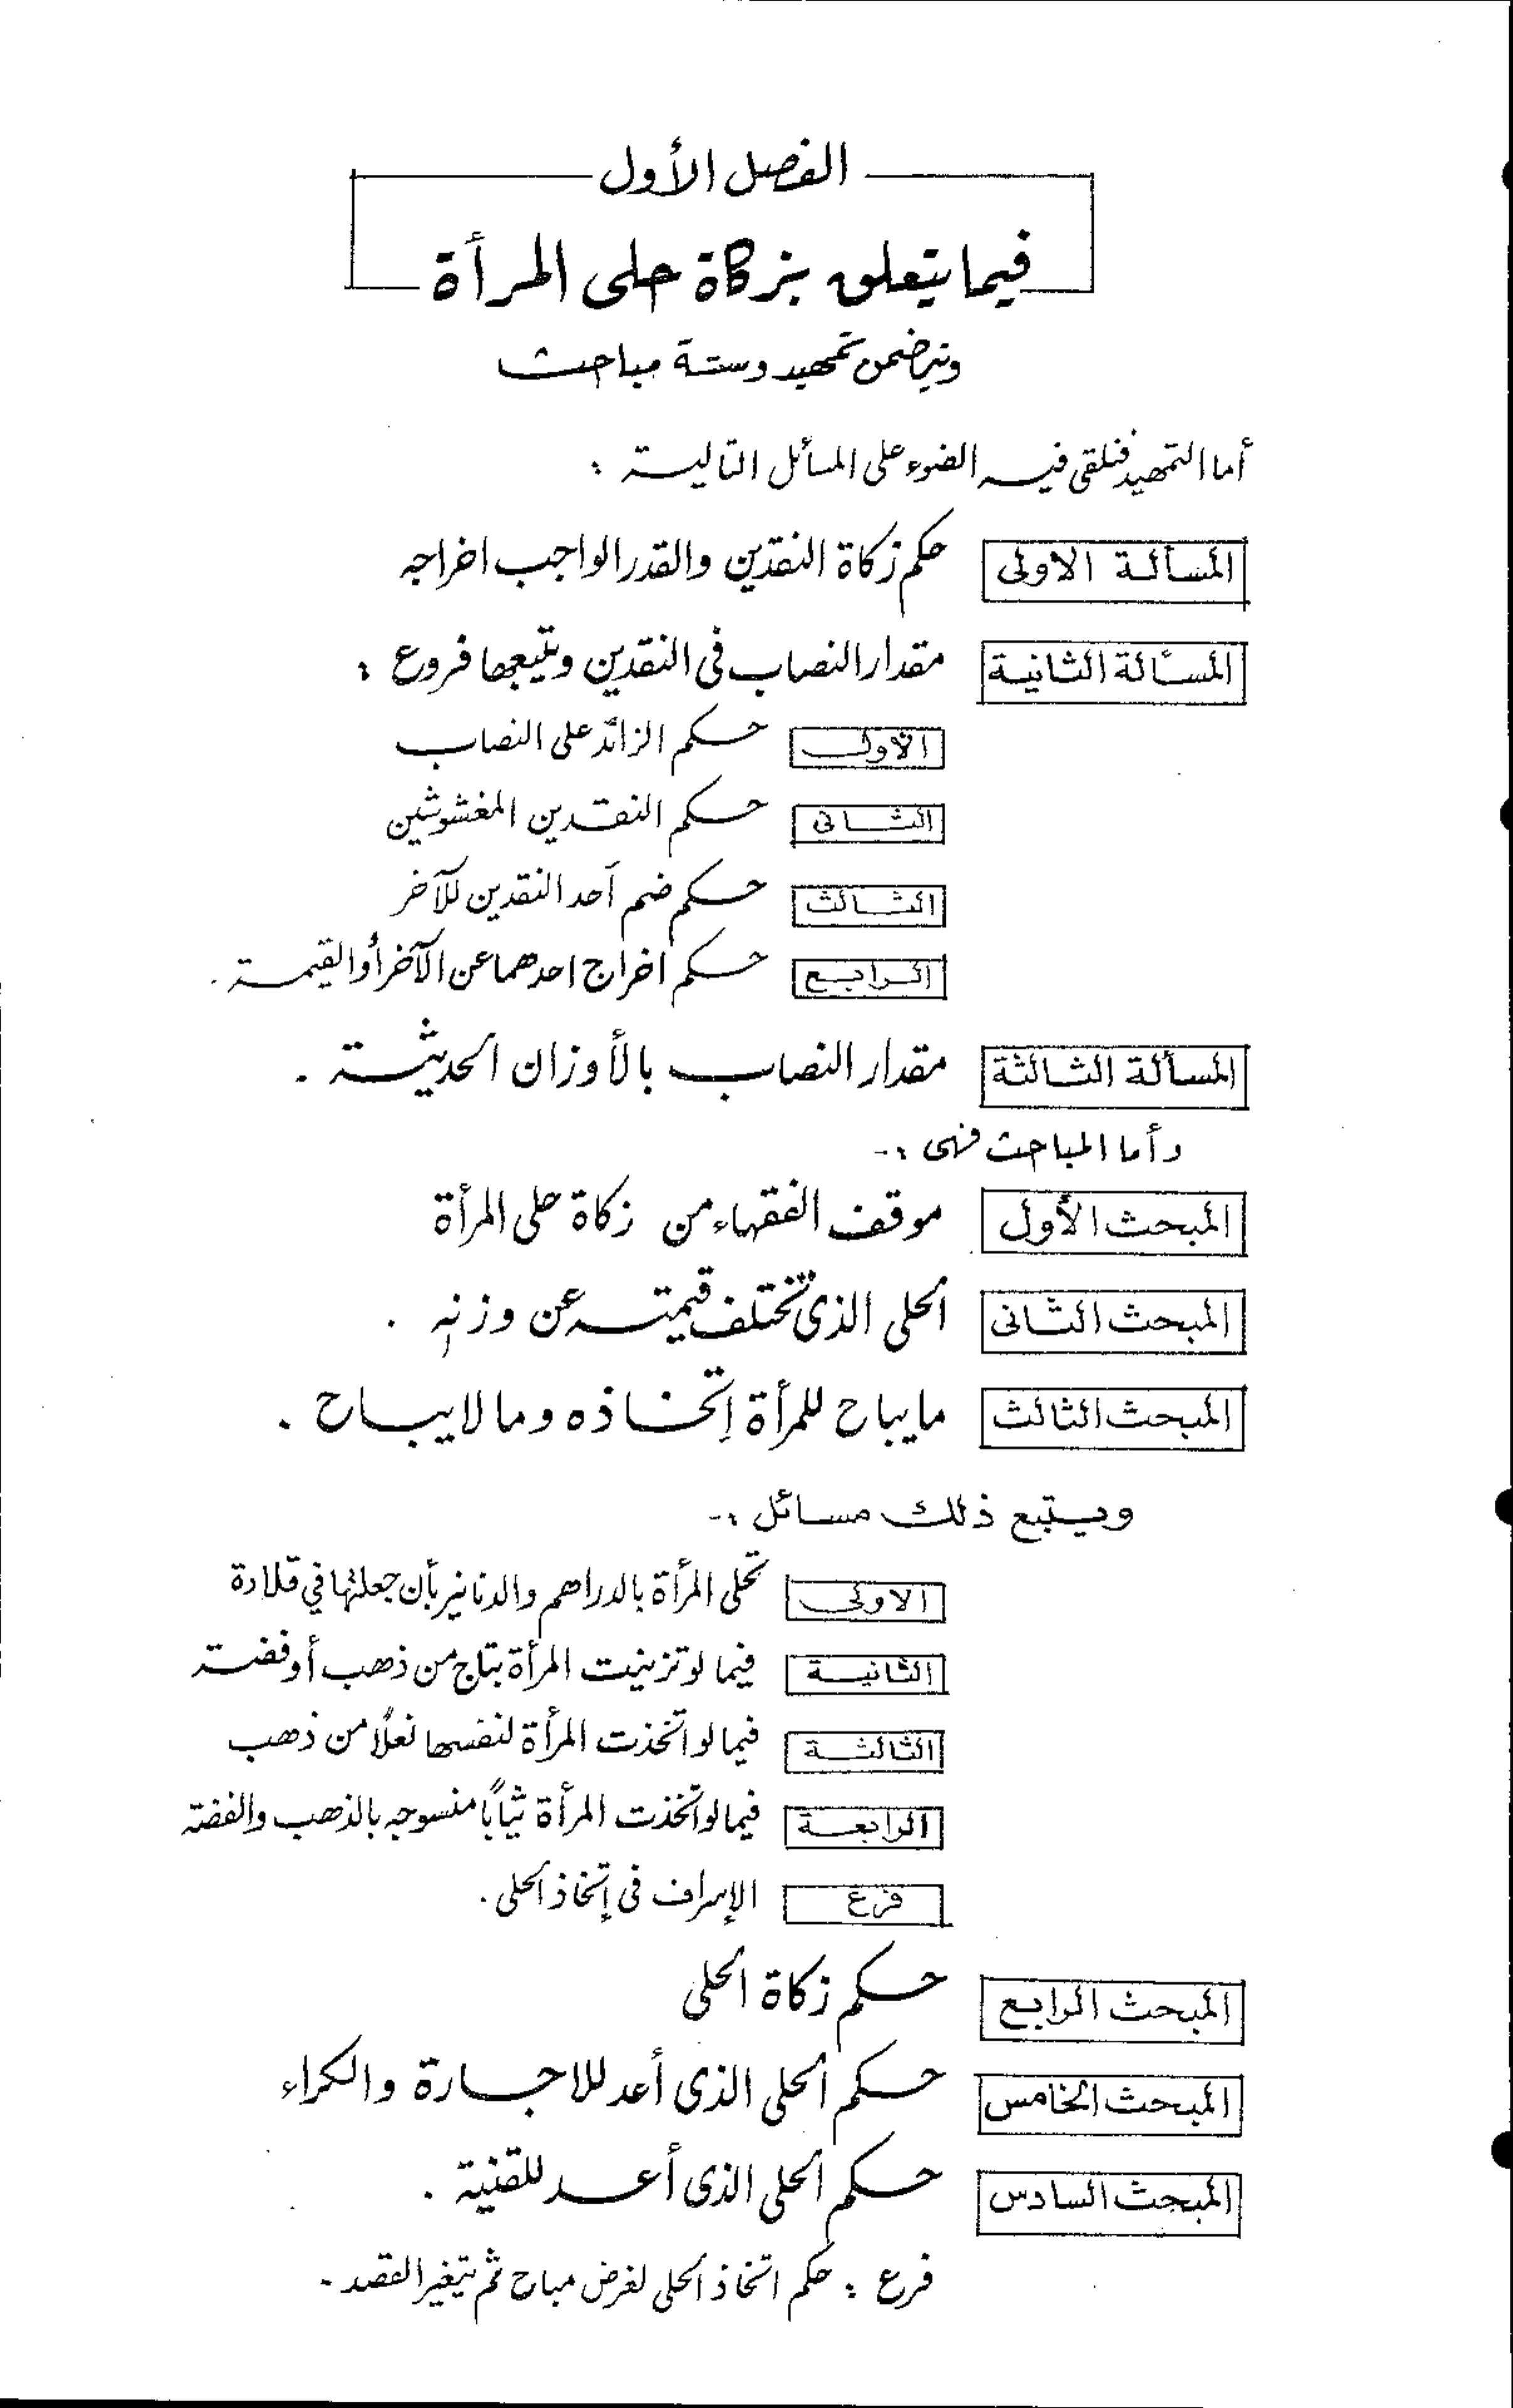 الفصل الأول
فيما يتعلق بزكاة حلى المرأة
ويتضمن تمهيد وستة مباحث
أما التمهيد فنلقى فيه الضوء على المسائل التالية :
المسألة الاولى حكم زكاة النقدين والقدر الواجب اخراجه
المسألة الثانية مقدار النصاب فى النقدين ويتبعها فروع :
الأول حكم الزائد على النصاب
الثانى حكم النقدين المغشوشين
الثالث حكم ضم أحد النقدين للآخر
الرابع حكم اخراج احدهما عن الآخر أو القيمة .
المسألة الثالثة مقدار النصاب بالأوزان الحديثة .
وأما المباحث فهى :-
المبحث الأول موقف الفقهاء من زكاة حلى المرأة
المبحث الثانى الحلى الذى تختلف قيمته عن وزنه .
المبحث الثالث ما يباح للمرأة إتخاذه وما لا يباح .
ويتبع ذلك مسائل :-
الاولى تحلى المرأة بالدراهم والدنانير بأن جعلتها في قلادة
الثانية فيما لو تزينت المرأة بتاج من ذهب أو فضة
الثالثة فيما لو اتخذت المرأة لنفسها نعلًا من ذهب
الرابعة فيما لو اتخذت المرأة ثيابًا منسوجه بالذهب والفضة
فرع الإسراف فى إتخاذ الحلى .
المبحث الرابع حكم زكاة الحلى
المبحث الخامس حكم الحلى الذى أعد للاجارة والكراء
المبحث السادس حكم الحلى الذى أعد للقنية .
فرع : حكم اتخاذ الحلى لغرض مباح ثم يتغير القصد .